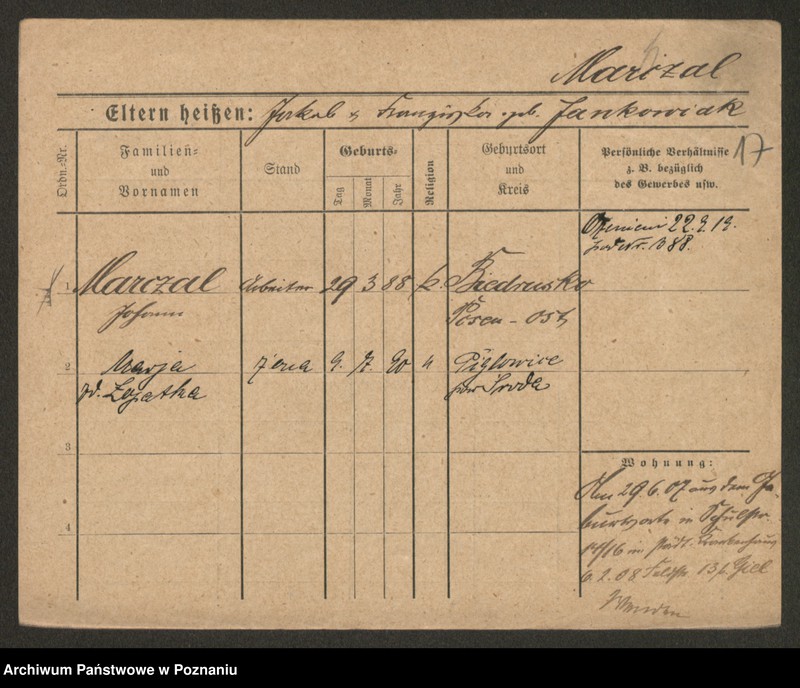 Marczal
Eltern heißen: Jakob u Franziska geb. Jankowiak
Ordn.-Nr.
Familien- und Vornamen
Stand
Geburts-
Tag
Monat
Jahr
Religion
Geburtsort und Kreis
Persönliche Verhältnisse z. B. bezüglich des Gewerbes usw.
17
22.9.19.
1
Marczal
Johann
Arbeiter
29
3
88
k.
Biedrusko
Posen-Ost
2
Marja
żona
9.
7.
90
"
Piglowice
pow Środa
3
4
Wohnung:
Am 29.6.07 aus dem Ge-
burtsorte in Schulstr.
14/16 in städt. Krankenhaus
6.2.08 Feldstr. 13
Archiwum Państwowe w Poznaniu